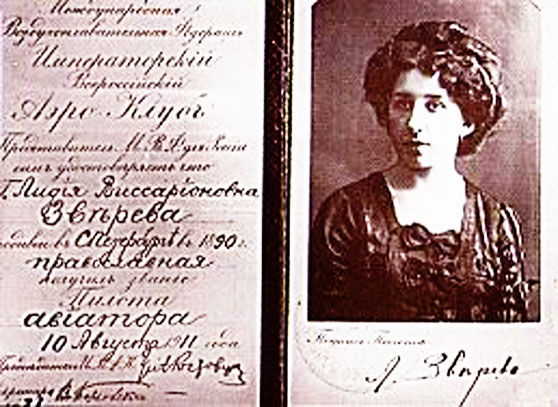 Международная
Воздухоплавательная Федерацiя
Императорскiй
Всероссiйскiй
Аэро-Клубъ
Представитель М. В. Ф. для
симъ удостовѣряетъ что
Г. Лидiя Виссарiоновна
Звѣрева
въ С.Петербургѣ въ 1890 г.
православная
получилъ званiе
Пилота
авiатора
10 Августа 1911 года
Л. Звѣрева